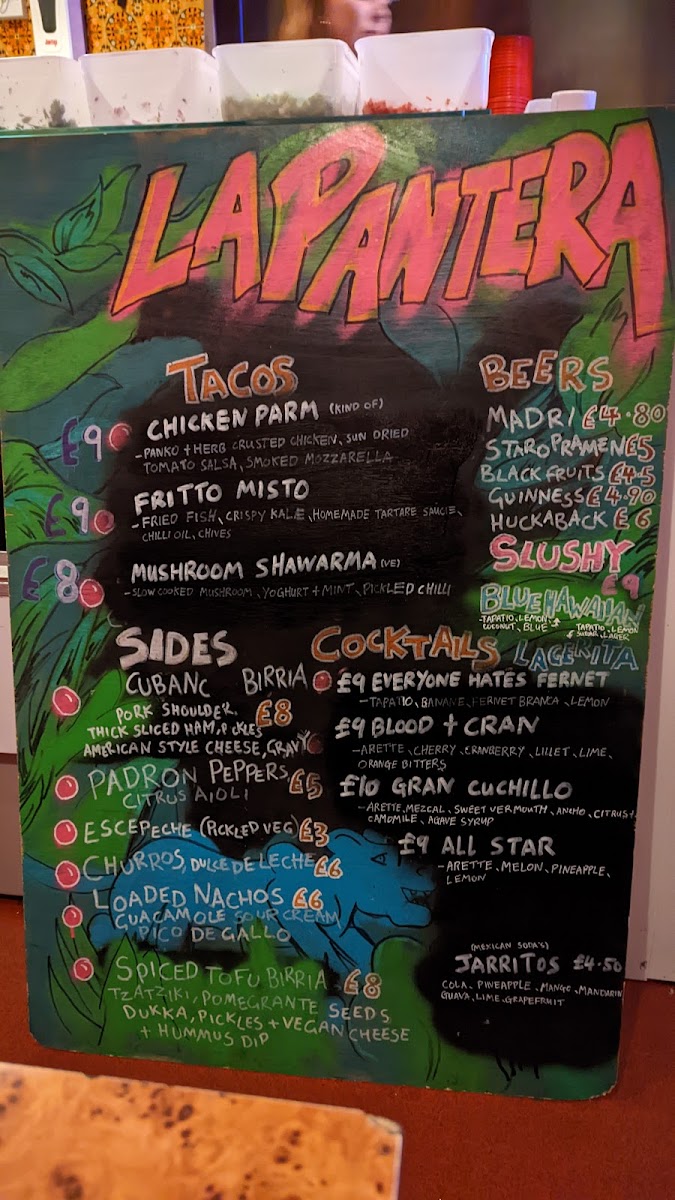 LA PANTERA
TACOS
£9 CHICKEN PARM (KIND OF)
-PANKO + HERB CRUSTED CHICKEN, SUN DRIED
TOMATO SALSA, SMOKED MOZZARELLA
£9 FRITTO MISTO
-FRIED FISH, CRISPY KALE, HOMEMADE TARTARE SAUCE,
CHILLI OIL, CHIVES
£8 MUSHROOM SHAWARMA (VE)
-SLOW COOKED MUSHROOM, YOGHURT + MINT, PICKLED CHILLI
BEERS
MADRI £4.80
STAROPRAMEN £5
BLACK FRUITS £4.5
GUINNESS £4.90
HUCKABACK £6
SLUSHY
£9
BLUE HAWAIIAN
-TAPATIO, LEMON
COCONUT, BLUE
TAPATIO, LEMON
SUGAR, LAGER
LAGERITA
SIDES
CUBANC BIRRIA
PORK SHOULDER, £8
THICK SLICED HAM, PICKLES
AMERICAN STYLE CHEESE, GRAVY
PADRON PEPPERS £5
CITRUS AIOLI
ESCEPECHE (PICKLED VEG) £3
CHURROS, DULCE DE LECHE £6
LOADED NACHOS £6
GUACAMOLE SOUR CREAM
PICO DE GALLO
SPICED TOFU BIRRIA £8
TZATZIKI, POMEGRANTE SEEDS
DUKKA, PICKLES + VEGAN CHEESE
+ HUMMUS DIP
COCKTAILS
£9 EVERYONE HATES FERNET
-TAPATIO, BANANE, FERNET BRANCA, LEMON
£9 BLOOD + CRAN
-ARETTE, CHERRY, CRANBERRY, LILLET, LIME,
ORANGE BITTERS
£10 GRAN CUCHILLO
-ARETTE, MEZCAL, SWEET VERMOUTH, ANCHO, CITRUS +
CAMOMILE, AGAVE SYRUP
£9 ALL STAR
-ARETTE, MELON, PINEAPPLE,
LEMON
(MEXICAN SODA'S)
JARRITOS £4.50
COLA, PINEAPPLE, MANGO, MANDARIN
GUAVA, LIME, GRAPEFRUIT